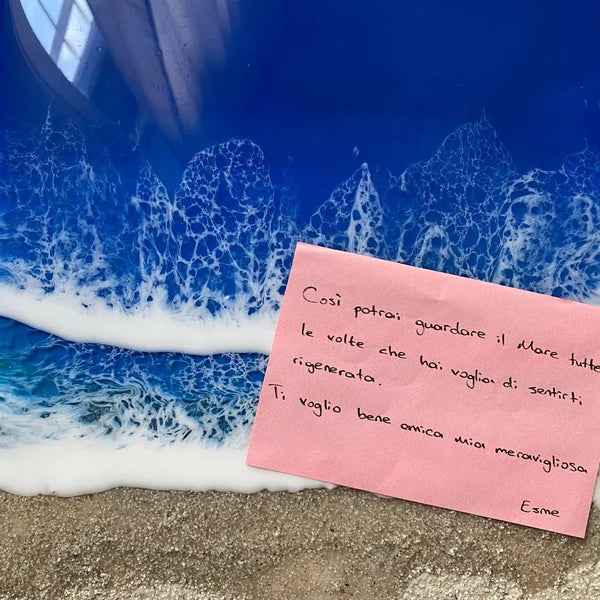 Così potrai guardare il Mare tutte
le volte che hai voglia di sentirti
rigenerata.
Ti voglio bene amica mia meravigliosa
Esme